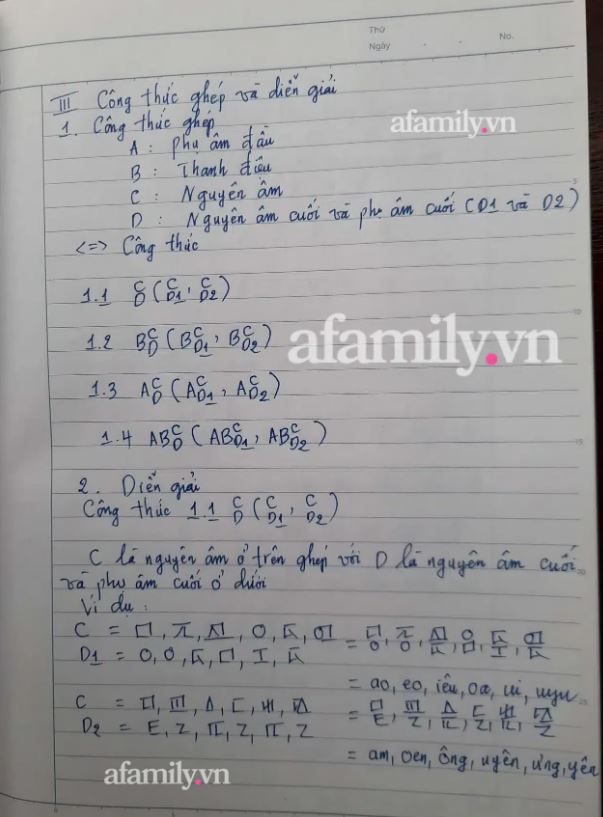 Thứ
Ngày
No.
III Công thức ghép và diễn giải
1. Công thức ghép
afamily.vn
A : phụ âm đầu
B : Thanh điệu
C : Nguyên âm
D : Nguyên âm cuối và phụ âm cuối (D1 và D2)
<=> Công thức
1.1 C/D (C/D1, C/D2)
1.2 BC/D (BC/D1, BC/D2)
afamily.vn
1.3 AC/D (AC/D1, AC/D2)
1.4 ABC/D (ABC/D1, ABC/D2)
2. Diễn giải
Công thức 1.1 C/D (C/D1, C/D2)
C là nguyên âm ở trên ghép với D là nguyên âm cuối
và phụ âm cuối ở dưới
Ví dụ :
C =
D1 =
= ao, eo, iêu, oa, ui, uyu
C =
D2 =
= am, oen, ông, uyên, ưng, yên
afamily.vn